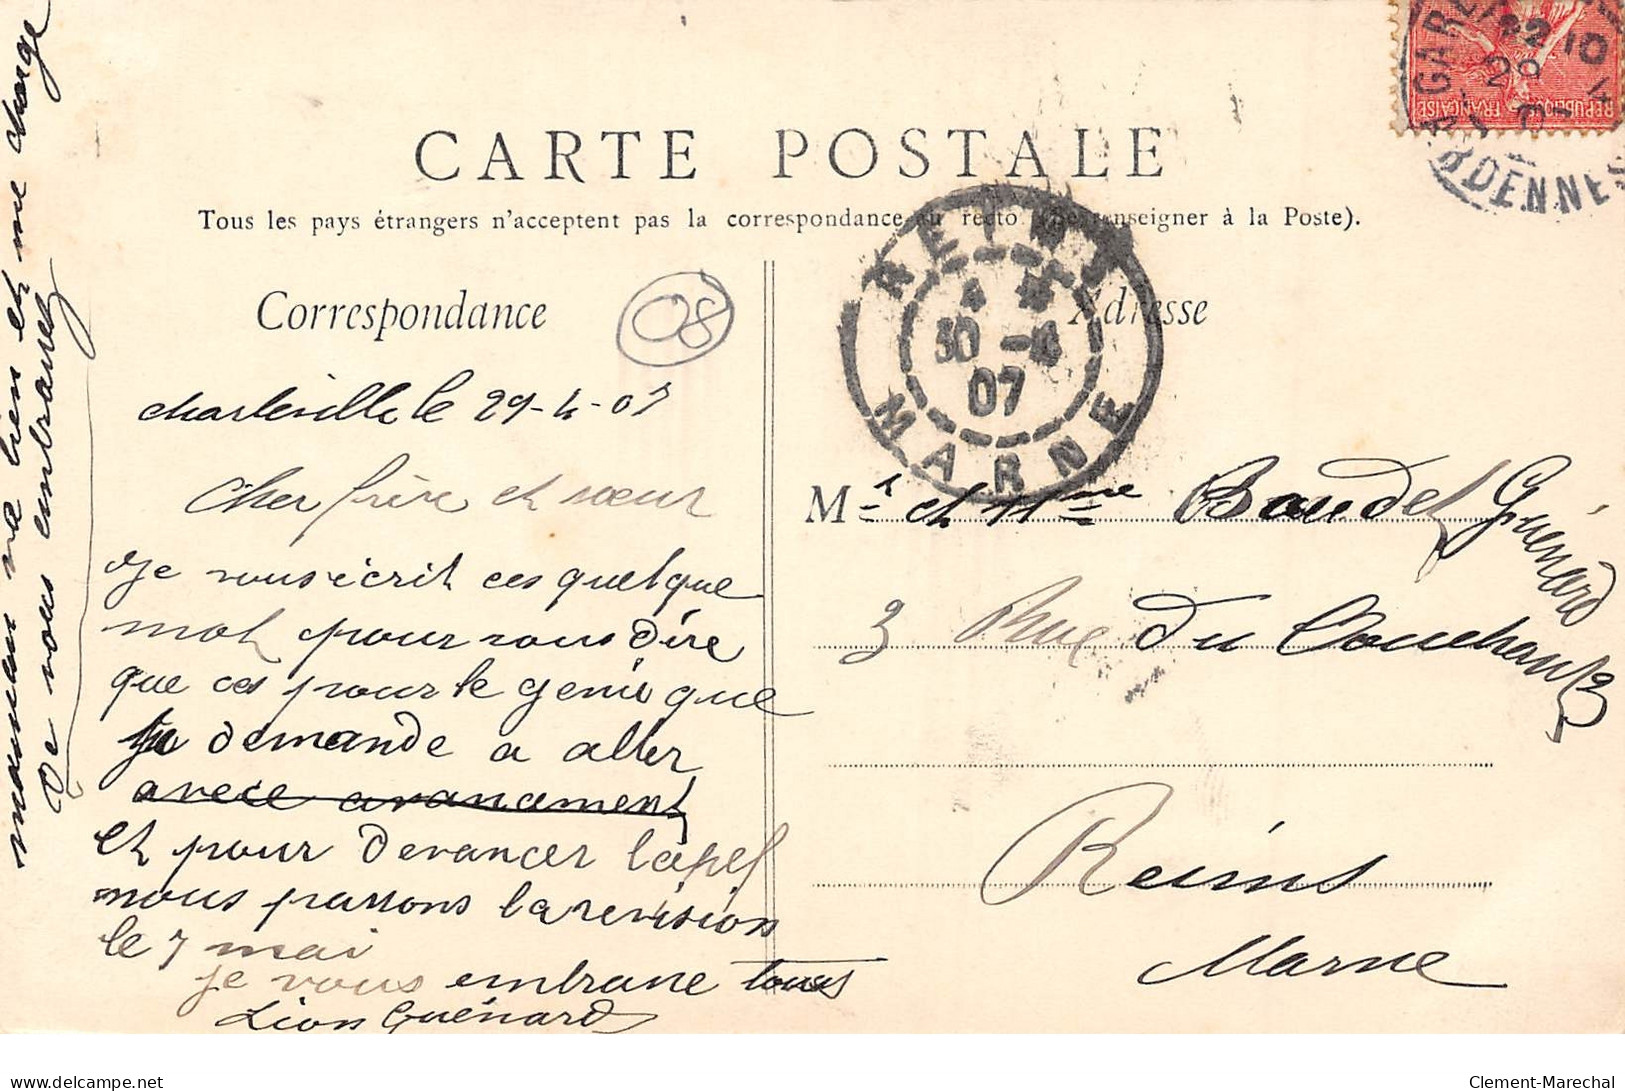 CARTE POSTALE
Tous les pays étrangers n'acceptent pas la correspondance au recto (Se renseigner à la Poste).
Correspondance
08
Adresse
REPUBLIQUE FRANÇAISE
22 10
29
ARDENNES
REIMS
30 -4
07
MARNE
charleville le 29-4-07
Cher frère et sœur
Je vous écrit ces quelque
mot pour vous dire
que ces pour le génie que
je demande a aller
et pour devancer lapel
nous passons la revision
le 7 mai
je vous embrasse tous
Léon Guénard
maman va bien et me charge
De vous embrasser
Mr et Mme Baudet Guénard
3 Rue du Couchant 3
Reims
Marne
delcampe.net
Clement-Marechal